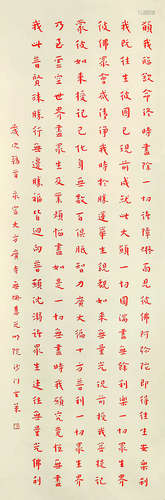 願我臨欲命終時盡除一切諸障礙面見彼佛阿彌陀即得往生安樂剎
我既往生彼國已現前成就此大願一切圓滿盡無餘利樂一切眾生界
彼佛眾會咸清淨我時於勝蓮華生親睹如來無量光現前授我菩提記
蒙彼如來授記已化身無數百俱胝智力廣大遍十方普利一切眾生界
乃至虛空世界盡眾生及業煩惱盡如是一切無盡時我願究竟恒無盡
我此普賢殊勝行無邊勝福皆迴向普願沈溺諸眾生速往無量光佛剎
歲次大方廣沙門